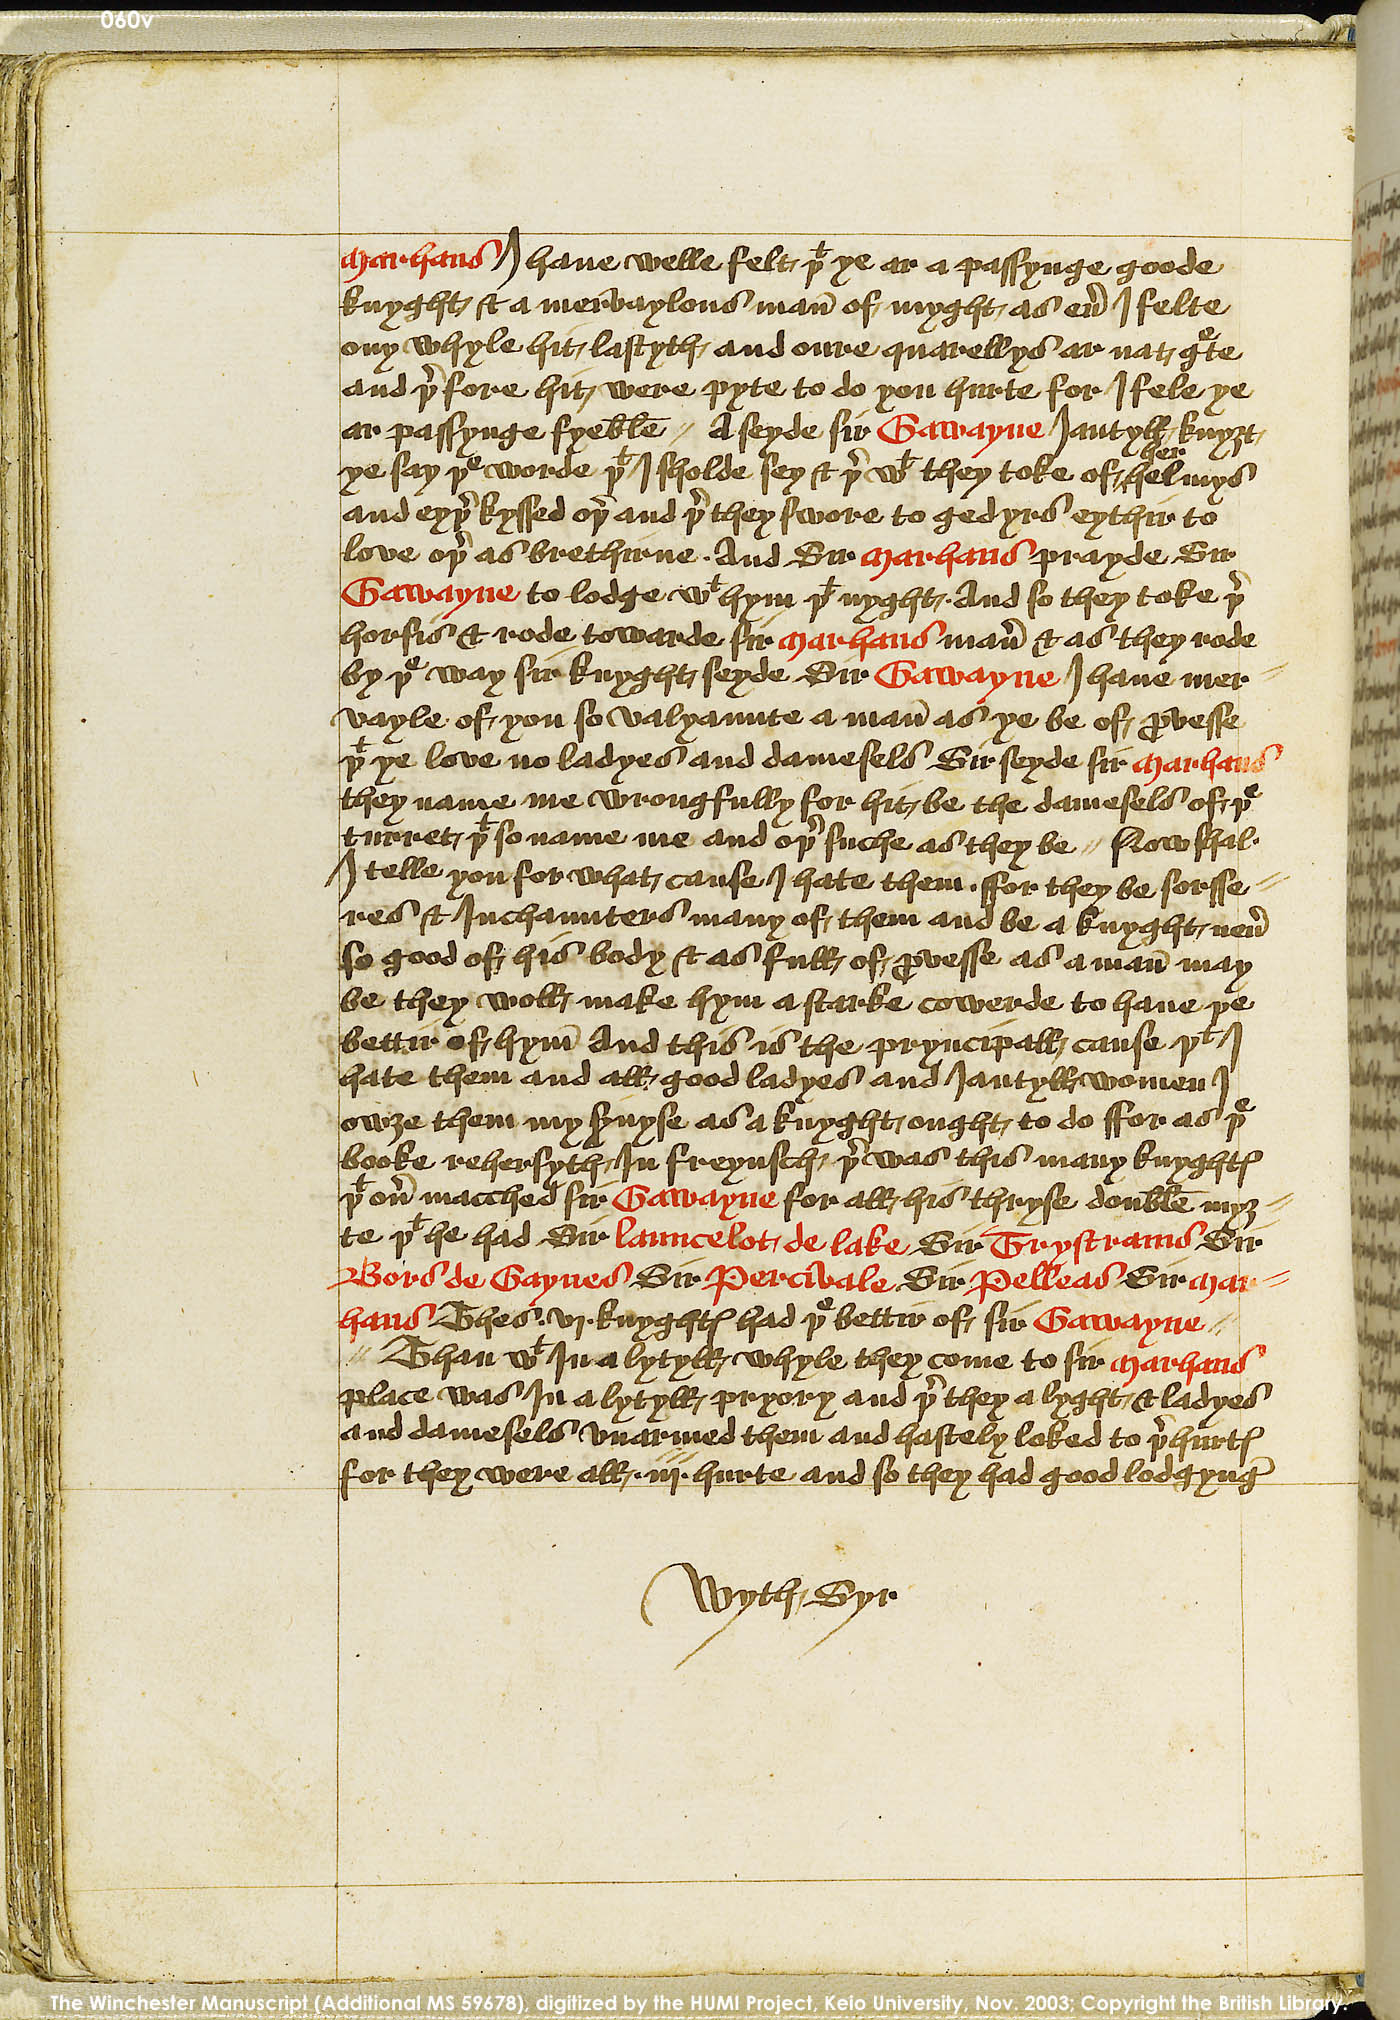 060v
Marhaus I haue welle felt þt ye ar a passynge goode
knyght & a mervaylous man̄ of myght as eu̾ I felte
ony whyle hit lastyth and oure quarellys ar nat gete
and þ̾ fore hit were pyte to do you hurte for I fele ye
ar passynge fyeble // A seyde sir Gawayne Jantyll knyȝt
ye say þe worde þt I sholde sey & þ̾ wt they toke of her helmys
and eyþ̾ kyssed oþ̾ and þ̾ they swore to gedyrs eythir to
love oþ̾ as brethirne. And Sir Marhaus prayde Sir
Gawayne to lodge wt hym þt nyght. And so they toke þ̾
horsis & rode towarde sir Marhaus man̾ & as they rode
by þe way sir knyght seyde Sir Gawayne I haue mer=
vayle of you so valyaunte a man̄ as ye be of ꝓvesse
þt ye love no ladyes and damesels Sir seyde sir Marhaus
they name me wrongfully for hit be the damesels of þe
turret þt so name me and oþ̾ suche as they be // Now shal
I telle you for what cause I hate them. ffor they be sorsse=
res & Inchaunters many of them and be a knyght neu̾
so good of his body & as full of ꝓvesse as a man̄ may
be they woll make hym a starke cowerde to haue þe
bettir of hym̄ And this is the pryncipall cause þt I
hate them and all good ladyes and Jantyll women I
owȝe them my s̾uyse as a knyght ought to do ffor as þe
booke rehersyth In freynsch þ̾ was this many knyghtꝭ
þt ou̾ macched sir Gawayne for all his thryse double myȝ=
te þt he had Sir Launcelot de lake Sir Trystrams Sir
Bors de Gaynes Sir Percivale Sir Pelleas Sir Mar=
haus Thes .vj. knyghtꝭ had þe bettir of sir Gawayne //
// Than wt In a lytyll whyle they come to sir Marhaus
place was In a lytyll pryory and þ̾ they a lyght & ladyes
and damesels vnarmed them and hastely loked to þ̾ hurtꝭ
for they were all .iij. hurte and so they had good lodgyng̾
Wyth Syr
The Winchester Manuscript (Additional MS 59678), digitized by the HUMI Project, Keio University, Nov. 2003; Copyright the British Library.